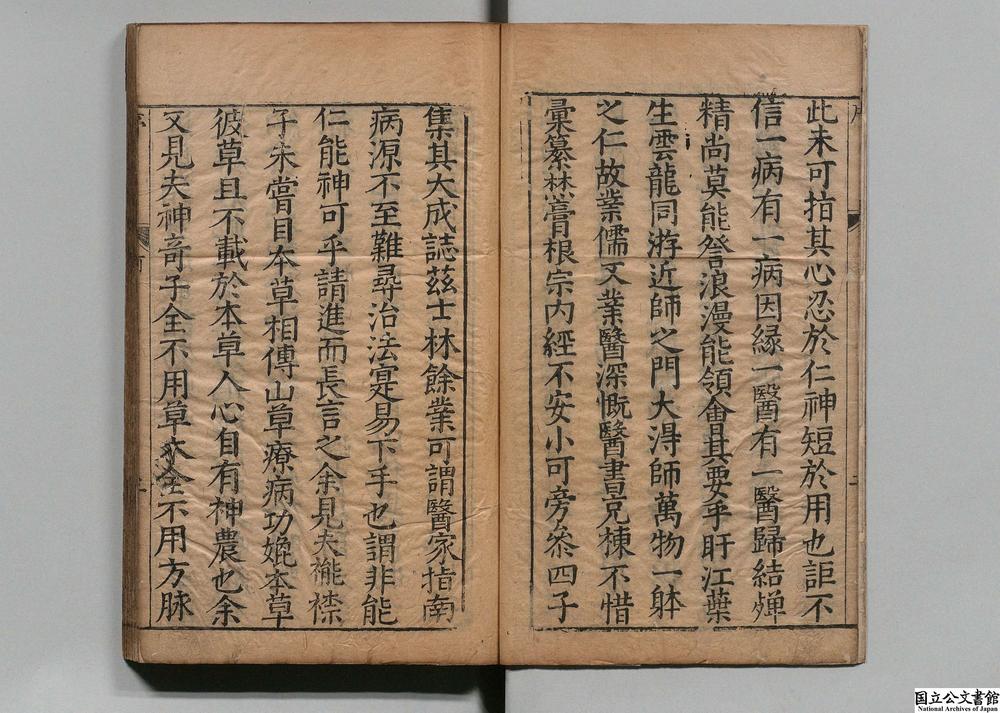 此未可指其心忍於仁神短於用也詎不
信一病有一病因緣一醫有一醫歸結殫
精尚莫能詧浪漫能領會其要乎盱江葉
生雲龍同游近師之門大淂師萬物一躰
之仁故業儒又業醫深慨醫書兄棟不惜
彙纂焚膏根宗内經不安小可旁叅四子
集其大成誌茲士林餘業可謂醫家指南
病源不至難尋治法寔易下手也謂非能
仁能神可乎請進而長言之余見夫襁褓
子未嘗目本草相傳山草療病功媲本草
彼草且不載於本草人心自有神農也余
又見夫神奇子全不用草木全不用方脉
国立公文書館
National Archives of Japan